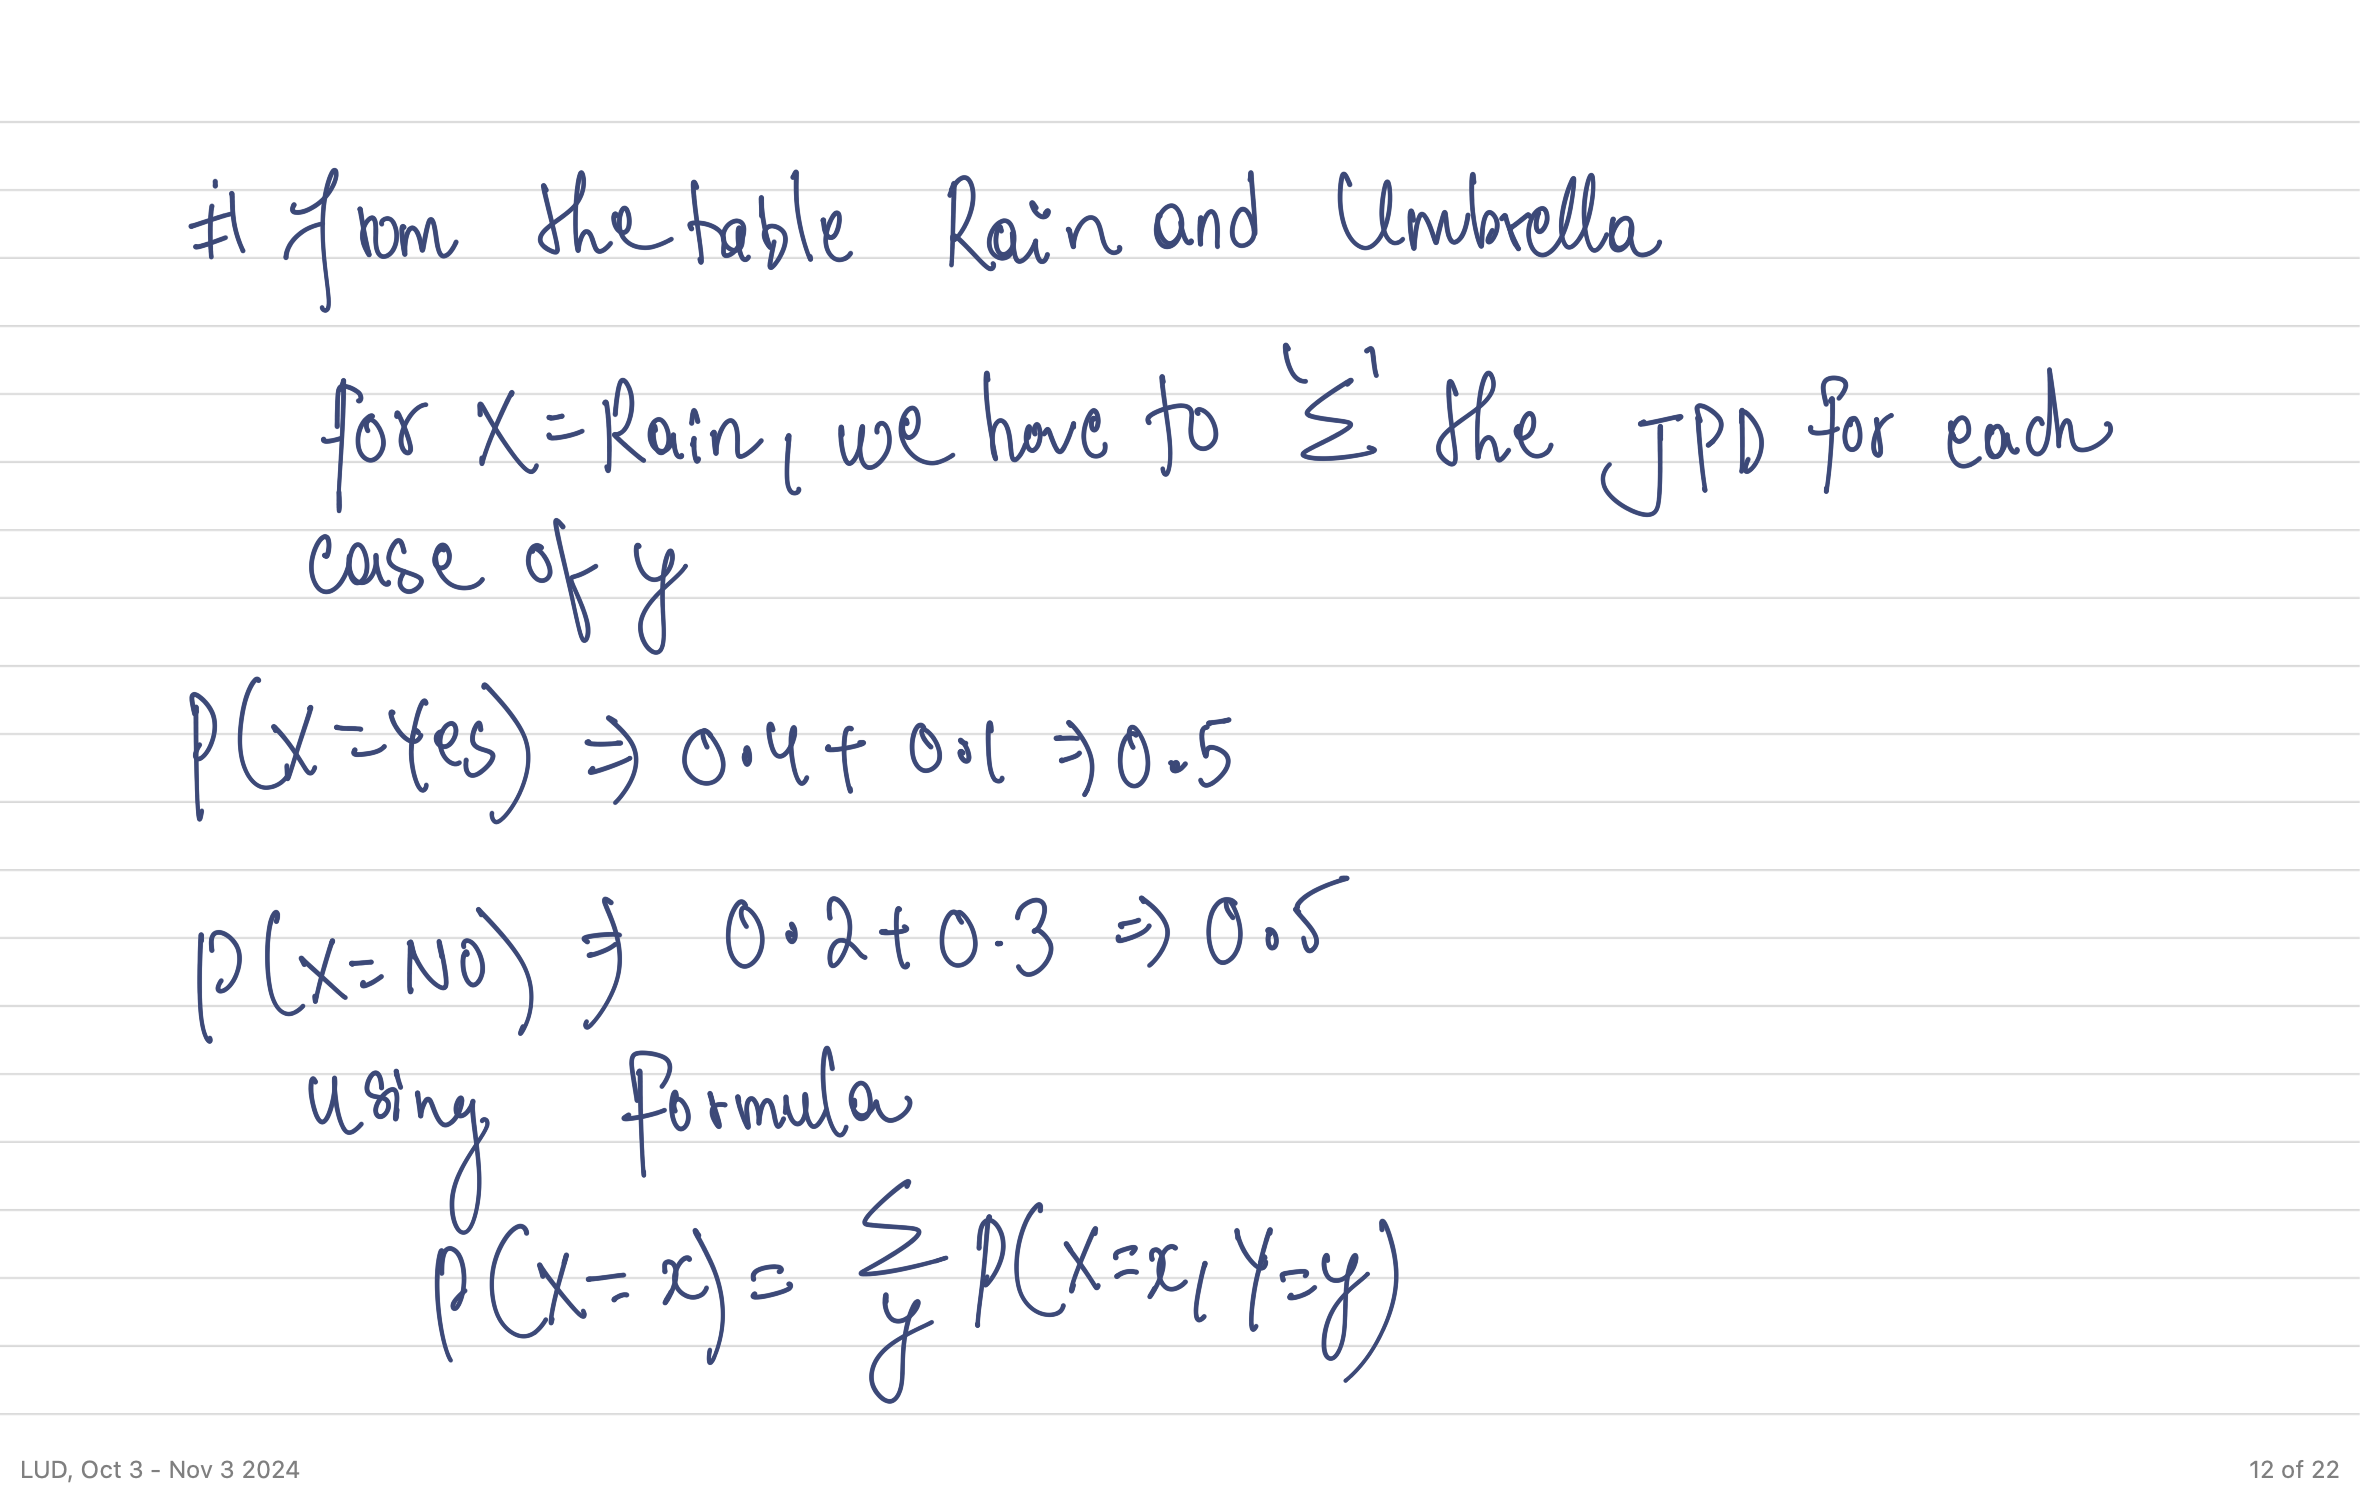 # From the table Rain and Umbrella
for X = Rain, we have to "Σ" the JPD for each
case of y
P(X = Yes) ⇒ 0.4 + 0.1 ⇒ 0.5
P(X = NO) ⇒ 0.2 + 0.3 ⇒ 0.5
using formula
P(X = x) = Σ P(X = x, Y = y)
y
LUD, Oct 3 - Nov 3 2024
12 of 22